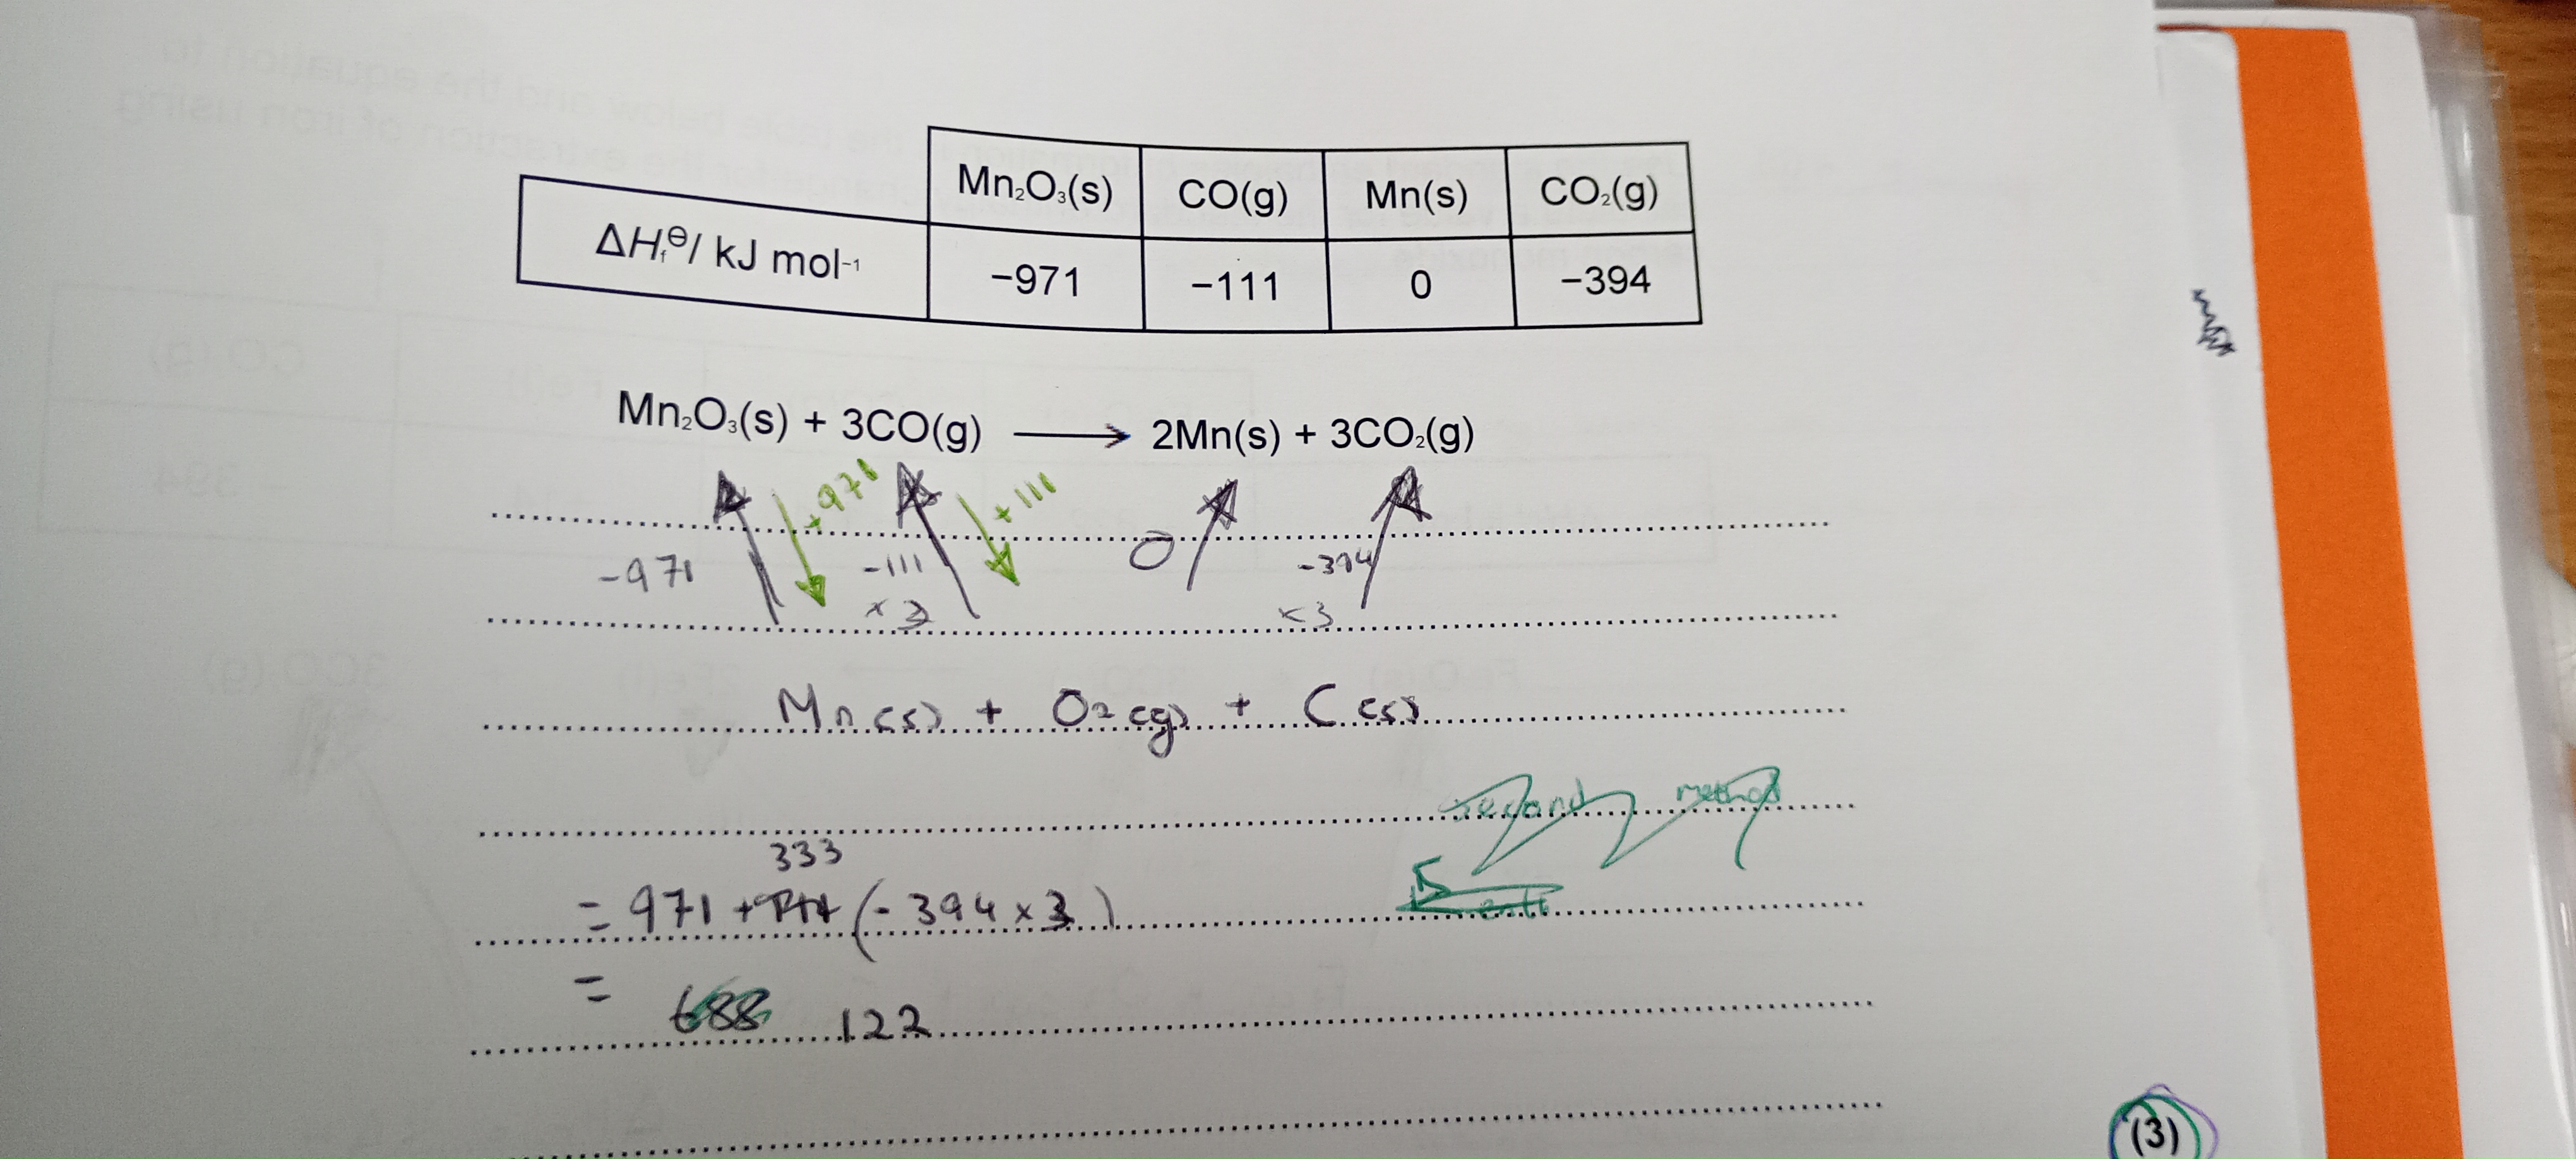 Mn₂O₃(s) CO(g) Mn(s) CO₂(g)
ΔHf⊖/ kJ mol⁻¹ −971 −111 0 −394
Mn₂O₃(s) + 3CO(g) ⟶ 2Mn(s) + 3CO₂(g)
+971 +111
-971 -111 0 -394
×3 ×3
Mn(s) + O₂(g) + C(s)
second method
333
= 971 + (-394×3)
= 688 122
(3)